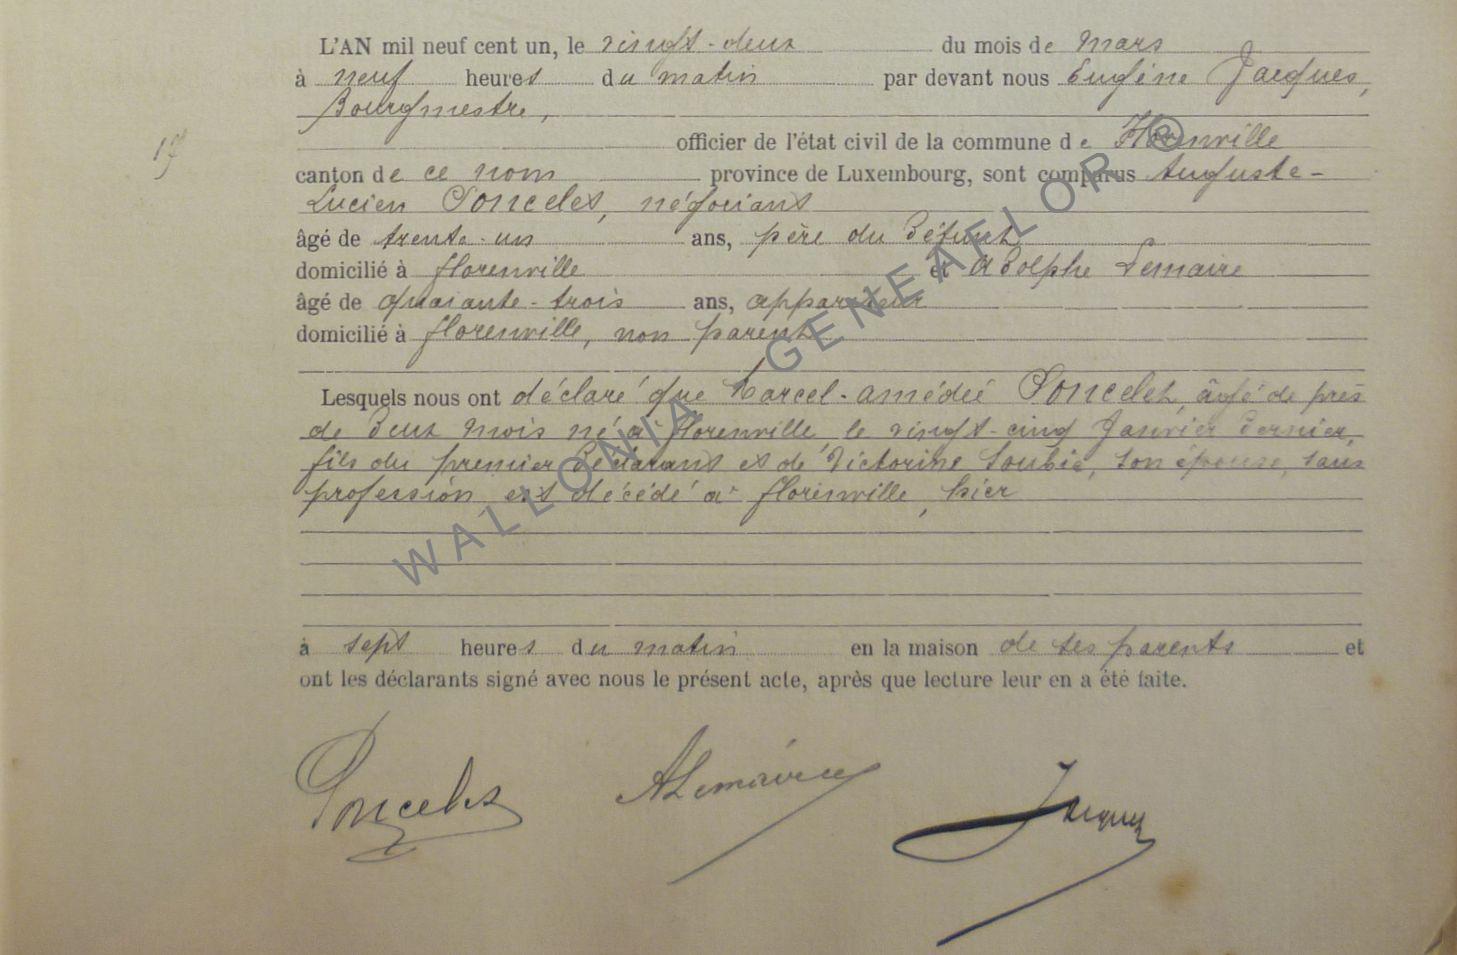 L'AN mil neuf cent un, le vingt-deux du mois de Mars
à neuf heures du matin par devant nous Eugène Jacques,
Bourgmestre,
17
officier de l'état civil de la commune de Florenville
canton de ce nom province de Luxembourg, sont comparus Auguste-
Lucien Poncelet, négociant
âgé de trente-un ans, père du défunt
domicilié à Florenville et Adolphe Lemaire
âgé de quarante-trois ans, appariteur
domicilié à Florenville, non parent
Lesquels nous ont déclaré que Marcel-Amédée Poncelet, âgé de près
de deux mois né à Florenville, le vingt-cinq Janvier dernier,
fils du premier déclarant et de Victorine Soubie, son épouse, sans
profession, est décédé à Florenville, hier
à sept heures du matin en la maison de ses parents et
ont les déclarants signé avec nous le présent acte, après que lecture leur en a été faite.
Poncelet ALemaire Jacques
WALLONIA GENEAFLOR ©